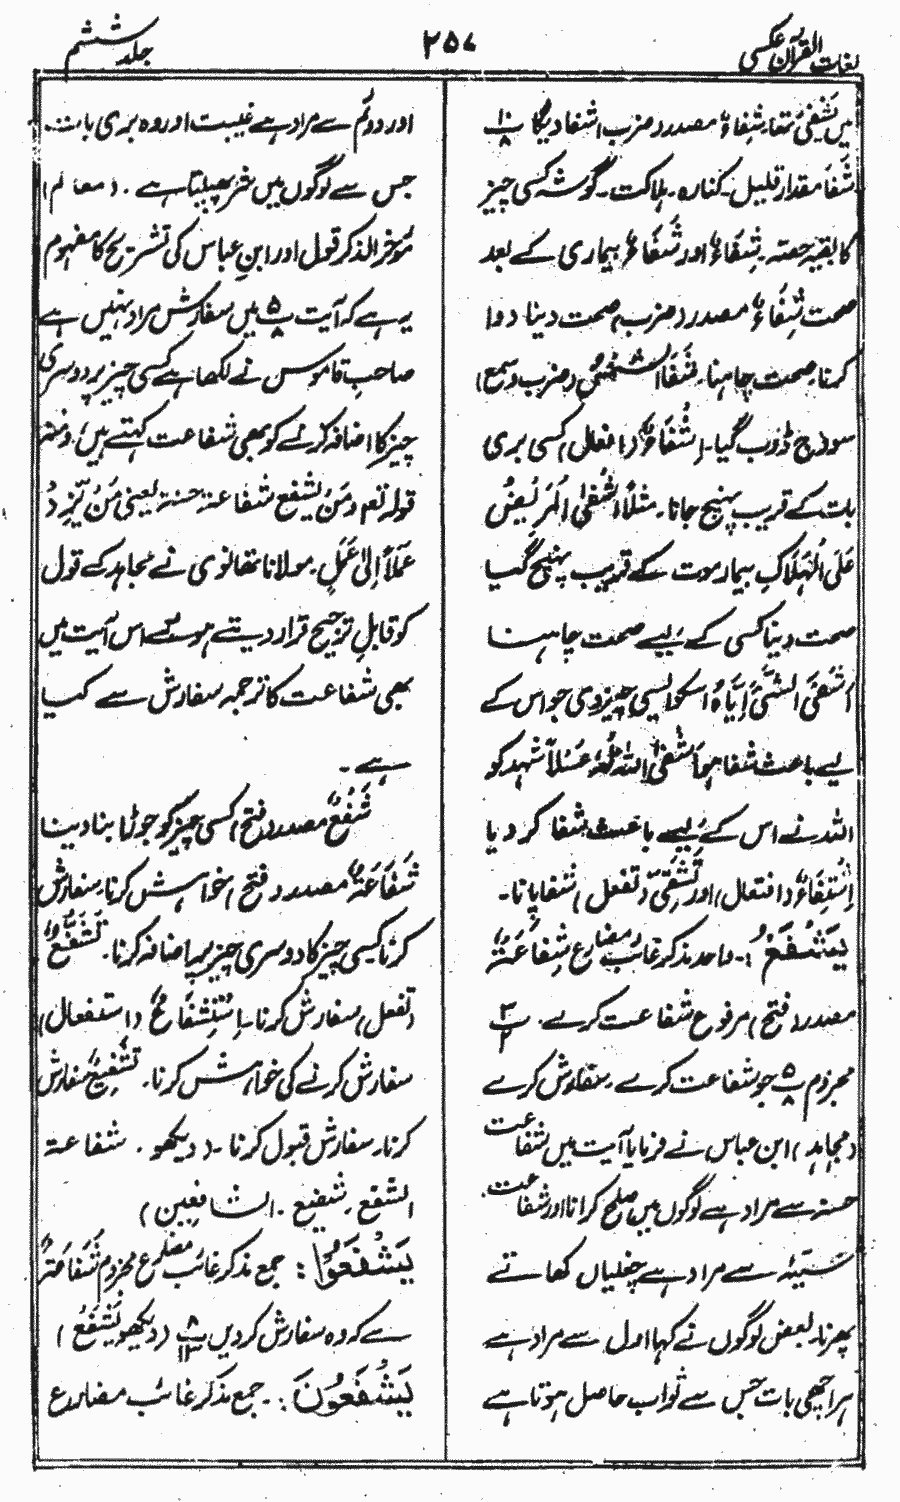 لغات القرآن عکسی
۲۵۷
جلد ششم
میں یَشْفِیْ متعار شِفَاءٌ مصدر (ضرب) شفا دیگا ۱۰/۸
شَفَا مقدار قلیل۔ کنارہ۔ ہلاکت۔ گوشہ کسی چیز
کا بقیہ حصہ۔ شِفَاءٌ اور شَفَاءٌ بیماری کے بعد
صحت شِفَاءٌ مصدر (ضرب) صحت دینا دوا
کرنا۔ صحت چاہنا۔ شَفَا الشَّمْسُ (ضرب و سمع)
سورج ڈوب گیا۔ اِشْفَاءٌ (افعال) کسی بری
بات کے قریب پہنچ جانا۔ مثلاً اَشْفَی الْمَرِیْضُ
عَلَی الْہَلَاکِ بیمار موت کے قریب پہنچ گیا
صحت دینا کسی کے لیے صحت چاہنا
اَشْفَی الشَّیْءَ اِیَّاہُ اسکو ایسی چیز دی جو اس کے
لیے باعث شفا ہو اَشْفَی اللّٰہُ عَسْلاً شہد کو
اللہ نے اس کے لیے باعث شفا کر دیا
اِشْتِفَاءٌ (افتعال) اور تَشَفِّیْ (تفعل) شفا پانا۔
یَشْفَعُ :۔ واحد مذکر غائب مضارع شفاعَۃٌ
مصدر (فتح) مرفوع شفاعت کرے۔ ۳/۲
مجزوم ۵/۸ جو شفاعت کرے۔ سفارش کرے
(مجاہد) ابن عباس نے فرمایا آیت میں شفاعت
حسنہ سے مراد ہے لوگوں میں صلح کرانا اور شفاعت
سیئہ سے مراد ہے چغلیاں کھاتے
پھرنا۔ بعض لوگوں نے کہا اول سے مراد ہے
ہر اچھی بات جس سے ثواب حاصل ہوتا ہے
اور دوئم سے مراد ہے غیبت اور وہ بری بات۔
جس سے لوگوں میں شر پھیلتا ہے۔ (معالم)
مؤخر الذکر قول اور ابن عباس کی تشریح کا مفہوم
یہ ہے کہ آیت ۵/۸ میں سفارش مراد نہیں ہے
صاحب قاموس نے لکھا ہے کسی چیز پر دوسری
چیز کا اضافہ کرنے کو بھی شفاعت کہتے ہیں، ومنہ
قولہ تعم وَمَنْ یَشْفَعْ شفاعۃ حسنۃ یعنی مَنْ یَّزِدْ
عَمَلاً اِلٰی عَمَلٍ۔ مولانا تھانوی نے مجاہد کے قول
کو قابل ترجیح قرار دیتے ہوئے اس آیت میں
بھی شفاعت کا ترجمہ سفارش سے کیا
ہے۔
شَفْعٌ مصدر (فتح) کسی چیز کو جوڑا بنا دینا
شَفَاعَۃٌ مصدر (فتح) خواہش کرنا۔ سفارش
کرنا کسی چیز کا دوسری چیز پر اضافہ کرنا۔ تَشَفُّعٌ
(تفعل) سفارش کرنا۔ اِسْتِشْفَاعٌ (استفعال)
سفارش کرنے کی خواہش کرنا۔ تَشْفِیْعٌ سفارش
کرنا۔ سفارش قبول کرنا۔ (دیکھو۔ شفاعۃ
الشفع۔ شفیع۔ الشافعین)
یَشْفَعُوْا : جمع مذکر غائب مضارع مجزوم شَفَاعَۃٌ
سے کہ وہ سفارش کردیں ۸/۱۳ (دیکھو یَشْفَعُ)
یَشْفَعُوْنَ :۔ جمع مذکر غائب مضارع